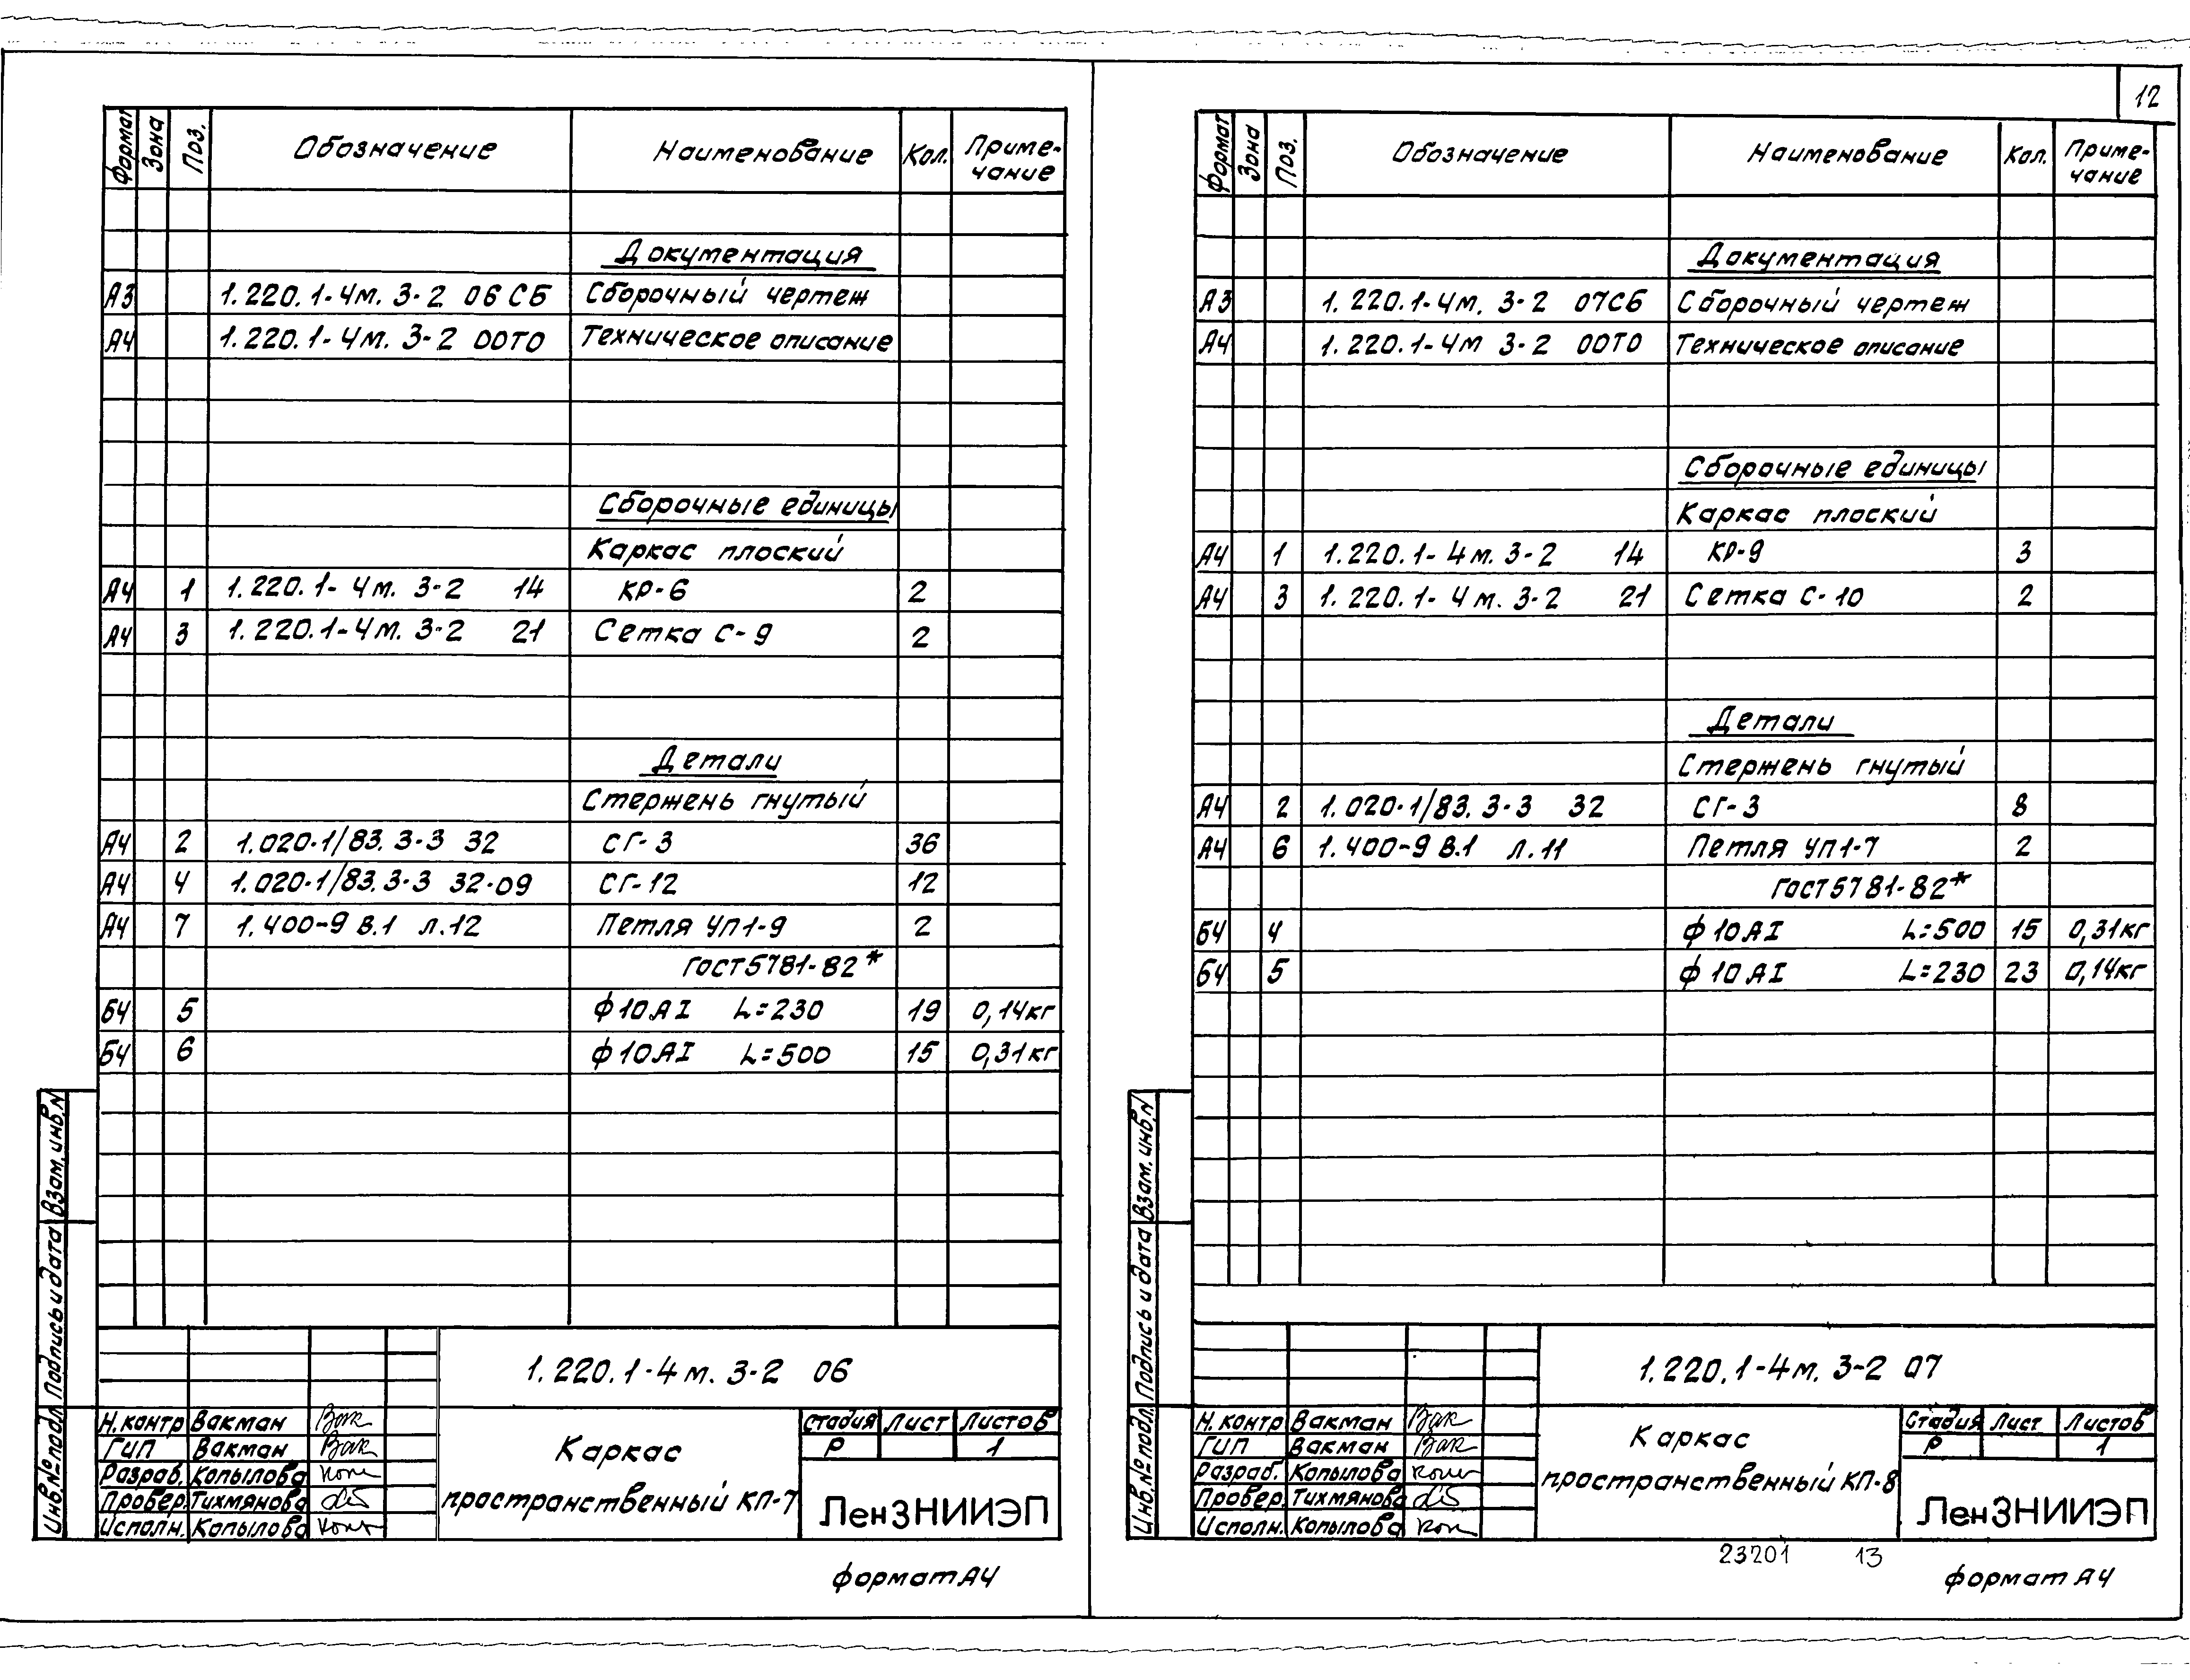 12
Формат Зона Поз. Обозначение Наименование Кол. Приме-
чание
Документация
А3 1.220.1-4м. 3-2 06 СБ Сборочный чертеж
А4 1.220.1-4м. 3-2 00ТО Техническое описание
Сборочные единицы
Каркас плоский
А4 1 1.220.1-4м. 3-2 14 КР-6 2
А4 3 1.220.1-4м. 3-2 21 Сетка С-9 2
Детали
Стержень гнутый
А4 2 1.020-1/83. 3-3 32 СГ-3 36
А4 4 1.020-1/83. 3-3 32-09 СГ-12 12
А4 7 1.400-9 В.1 л.12 Петля УП1-9 2
ГОСТ 5781-82*
БЧ 5 ф10АI L=230 19 0,14кг
БЧ 6 ф10АI L=500 15 0,31кг
Инв.№подл. Подпись и дата Взам.инв.N
1.220.1-4м. 3-2 06
Н.контр Вакман Вак
ГИП Вакман Вак
Разраб. Копылова
Провер. Тихмянова
Исполн. Копылова
Каркас
пространственный КП-7
Стадия Лист Листов
Р 1
ЛенЗНИИЭП
формат А4
Формат Зона Поз. Обозначение Наименование Кол. Приме-
чание
Документация
А3 1.220.1-4м. 3-2 07СБ Сборочный чертеж
А4 1.220.1-4м 3-2 00ТО Техническое описание
Сборочные единицы
Каркас плоский
А4 1 1.220.1-4м. 3-2 14 КР-9 3
А4 3 1.220.1-4м. 3-2 21 Сетка С-10 2
Детали
Стержень гнутый
А4 2 1.020-1/83. 3-3 32 СГ-3 8
А4 6 1.400-9 В.1 л.11 Петля УП1-7 2
ГОСТ 5781-82*
БЧ 4 ф10АI L=500 15 0,31кг
БЧ 5 ф10АI L=230 23 0,14кг
Инв.№подл. Подпись и дата Взам.инв.N
1.220.1-4м. 3-2 07
Н.контр Вакман Вак
ГИП Вакман Вак
Разраб. Копылова
Провер. Тихмянова
Исполн. Копылова
Каркас
пространственный КП-8
Стадия Лист Листов
Р 1
ЛенЗНИИЭП
23201 13
формат А4